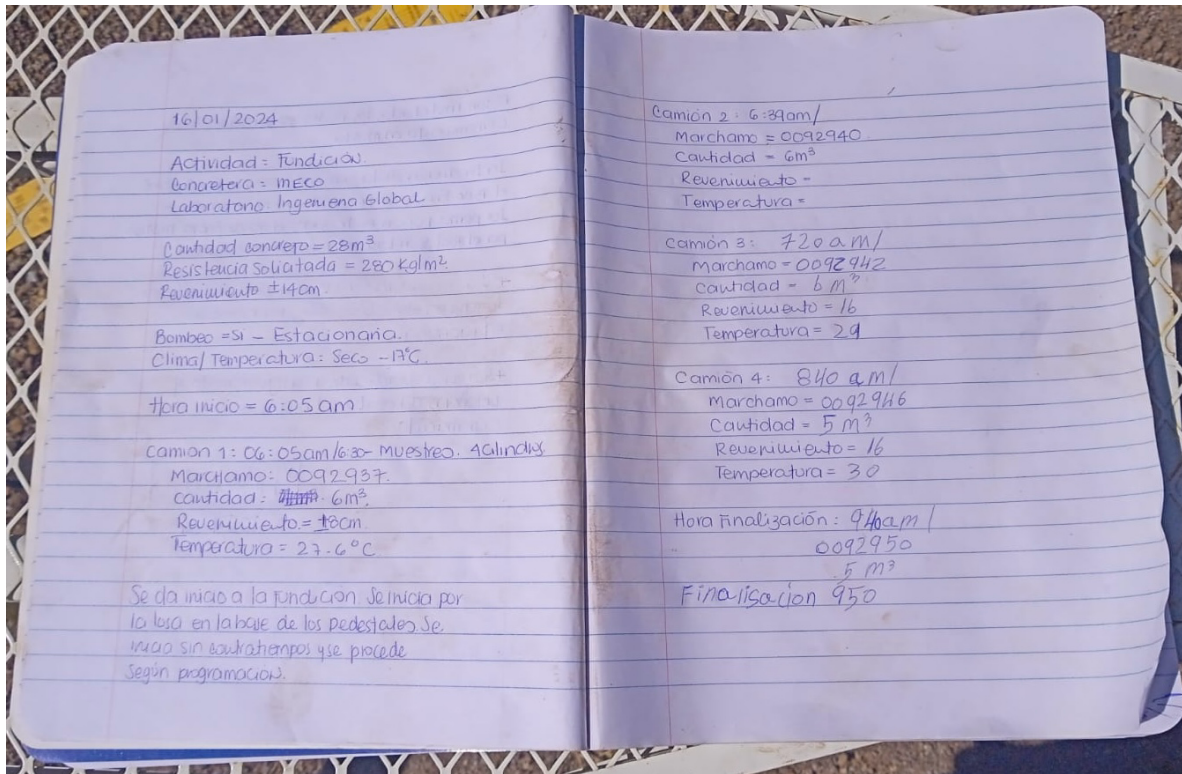 16/01/2024
Actividad = Fundición.
Concretera = MECO
Laboratorio: Ingenieria Global
Cantidad concreto = 28m³
Resistencia Solicitada = 280 Kg/m².
Revenimiento ±14cm.
Bombeo = Si - Estacionaria.
Clima/ Temperatura: Seco - 17°C.
Hora inicio = 6:05 am
Camion 1: 06:05am/6:30- Muestreo. 4 Cilindros
Marchamo: 0092937.
Cantidad: 6m³.
Revenimiento = 18cm.
Temperatura = 27.6°C
Se da inicio a la fundición Se inicia por
la losa en la base de los pedestales Se
inicia sin contratiempos y se procede
Según programacion.
Camión 2: 6:39am/
Marchamo = 0092940
Cantidad = 6m³
Revenimiento =
Temperatura =
Camión 3: 720 am/
Marchamo = 0092942
Cantidad = 6 m³
Revenimiento = 16
Temperatura = 29
Camión 4: 840 am/
Marchamo = 0092946
Cantidad = 5 m³
Revenimiento = 16
Temperatura = 30
Hora Finalización: 940am/
0092950
5 m³
Finalisacion 950